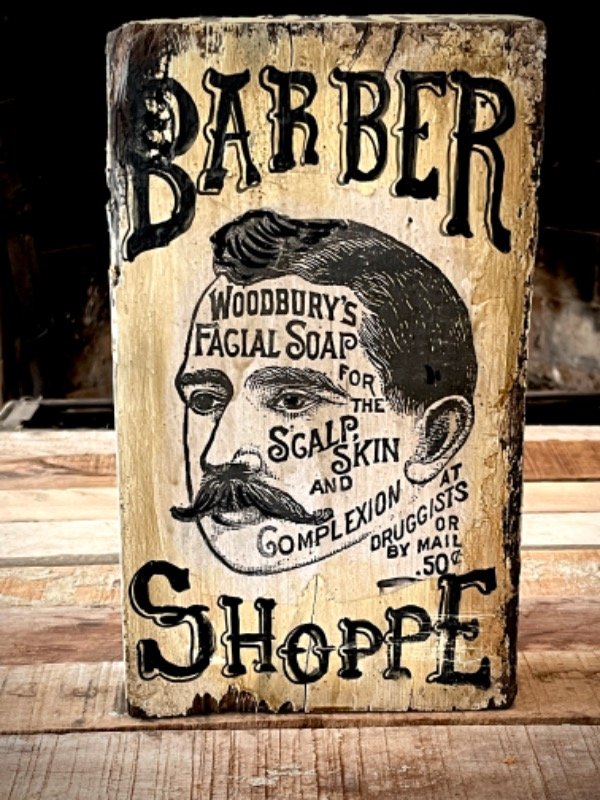 BARBER
WOODBURY'S
FACIAL SOAP
FOR
THE
SCALP,
SKIN
AND
COMPLEXION
AT
DRUGGISTS
OR
BY MAIL
.50¢
SHOPPE